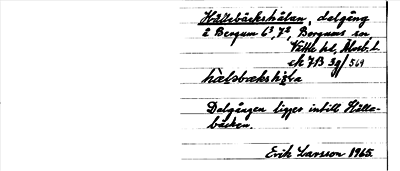 Hältebäckshålan, dalgång
å Bergum 6³, 7², Bergums sn
Vättle hd, Älvsb. l.
ek 7B 3g/569
hàlsbækshɔ́la
Dalgången ligger intill Hälle-
bäcken.
Erik Larsson 1965.